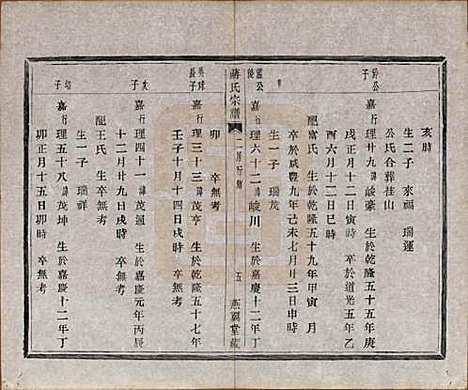 亥時
生二子 來福 瑞運
公氏合葬桂山
戌正月十二日寅時 卒於道光五年乙
酉六月十二日巳時
嘉行理廿九諱峻豪 生於乾隆五十五年庚
配富氏 生於乾隆五十九年甲寅 月
卒於咸豐九年己未七月廿三日申時
生一子 瑞茂
嘉行理六十二諱峻川 生於嘉慶十二年丁
卯 卒無考
蔣氏宗譜
五
燕翼堂藏
嘉行理三十三諱茂亨 生於乾隆五十七年
壬子十月十四日 卒無考
嘉行理四十一諱茂通 生於嘉慶元年丙辰
十二月廿九日戌時 卒無考
配王氏 生卒無考
生一子 瑞祥
嘉行理五十八諱茂坤 生於嘉慶十二年丁
卯正月十五日卯時 卒無考